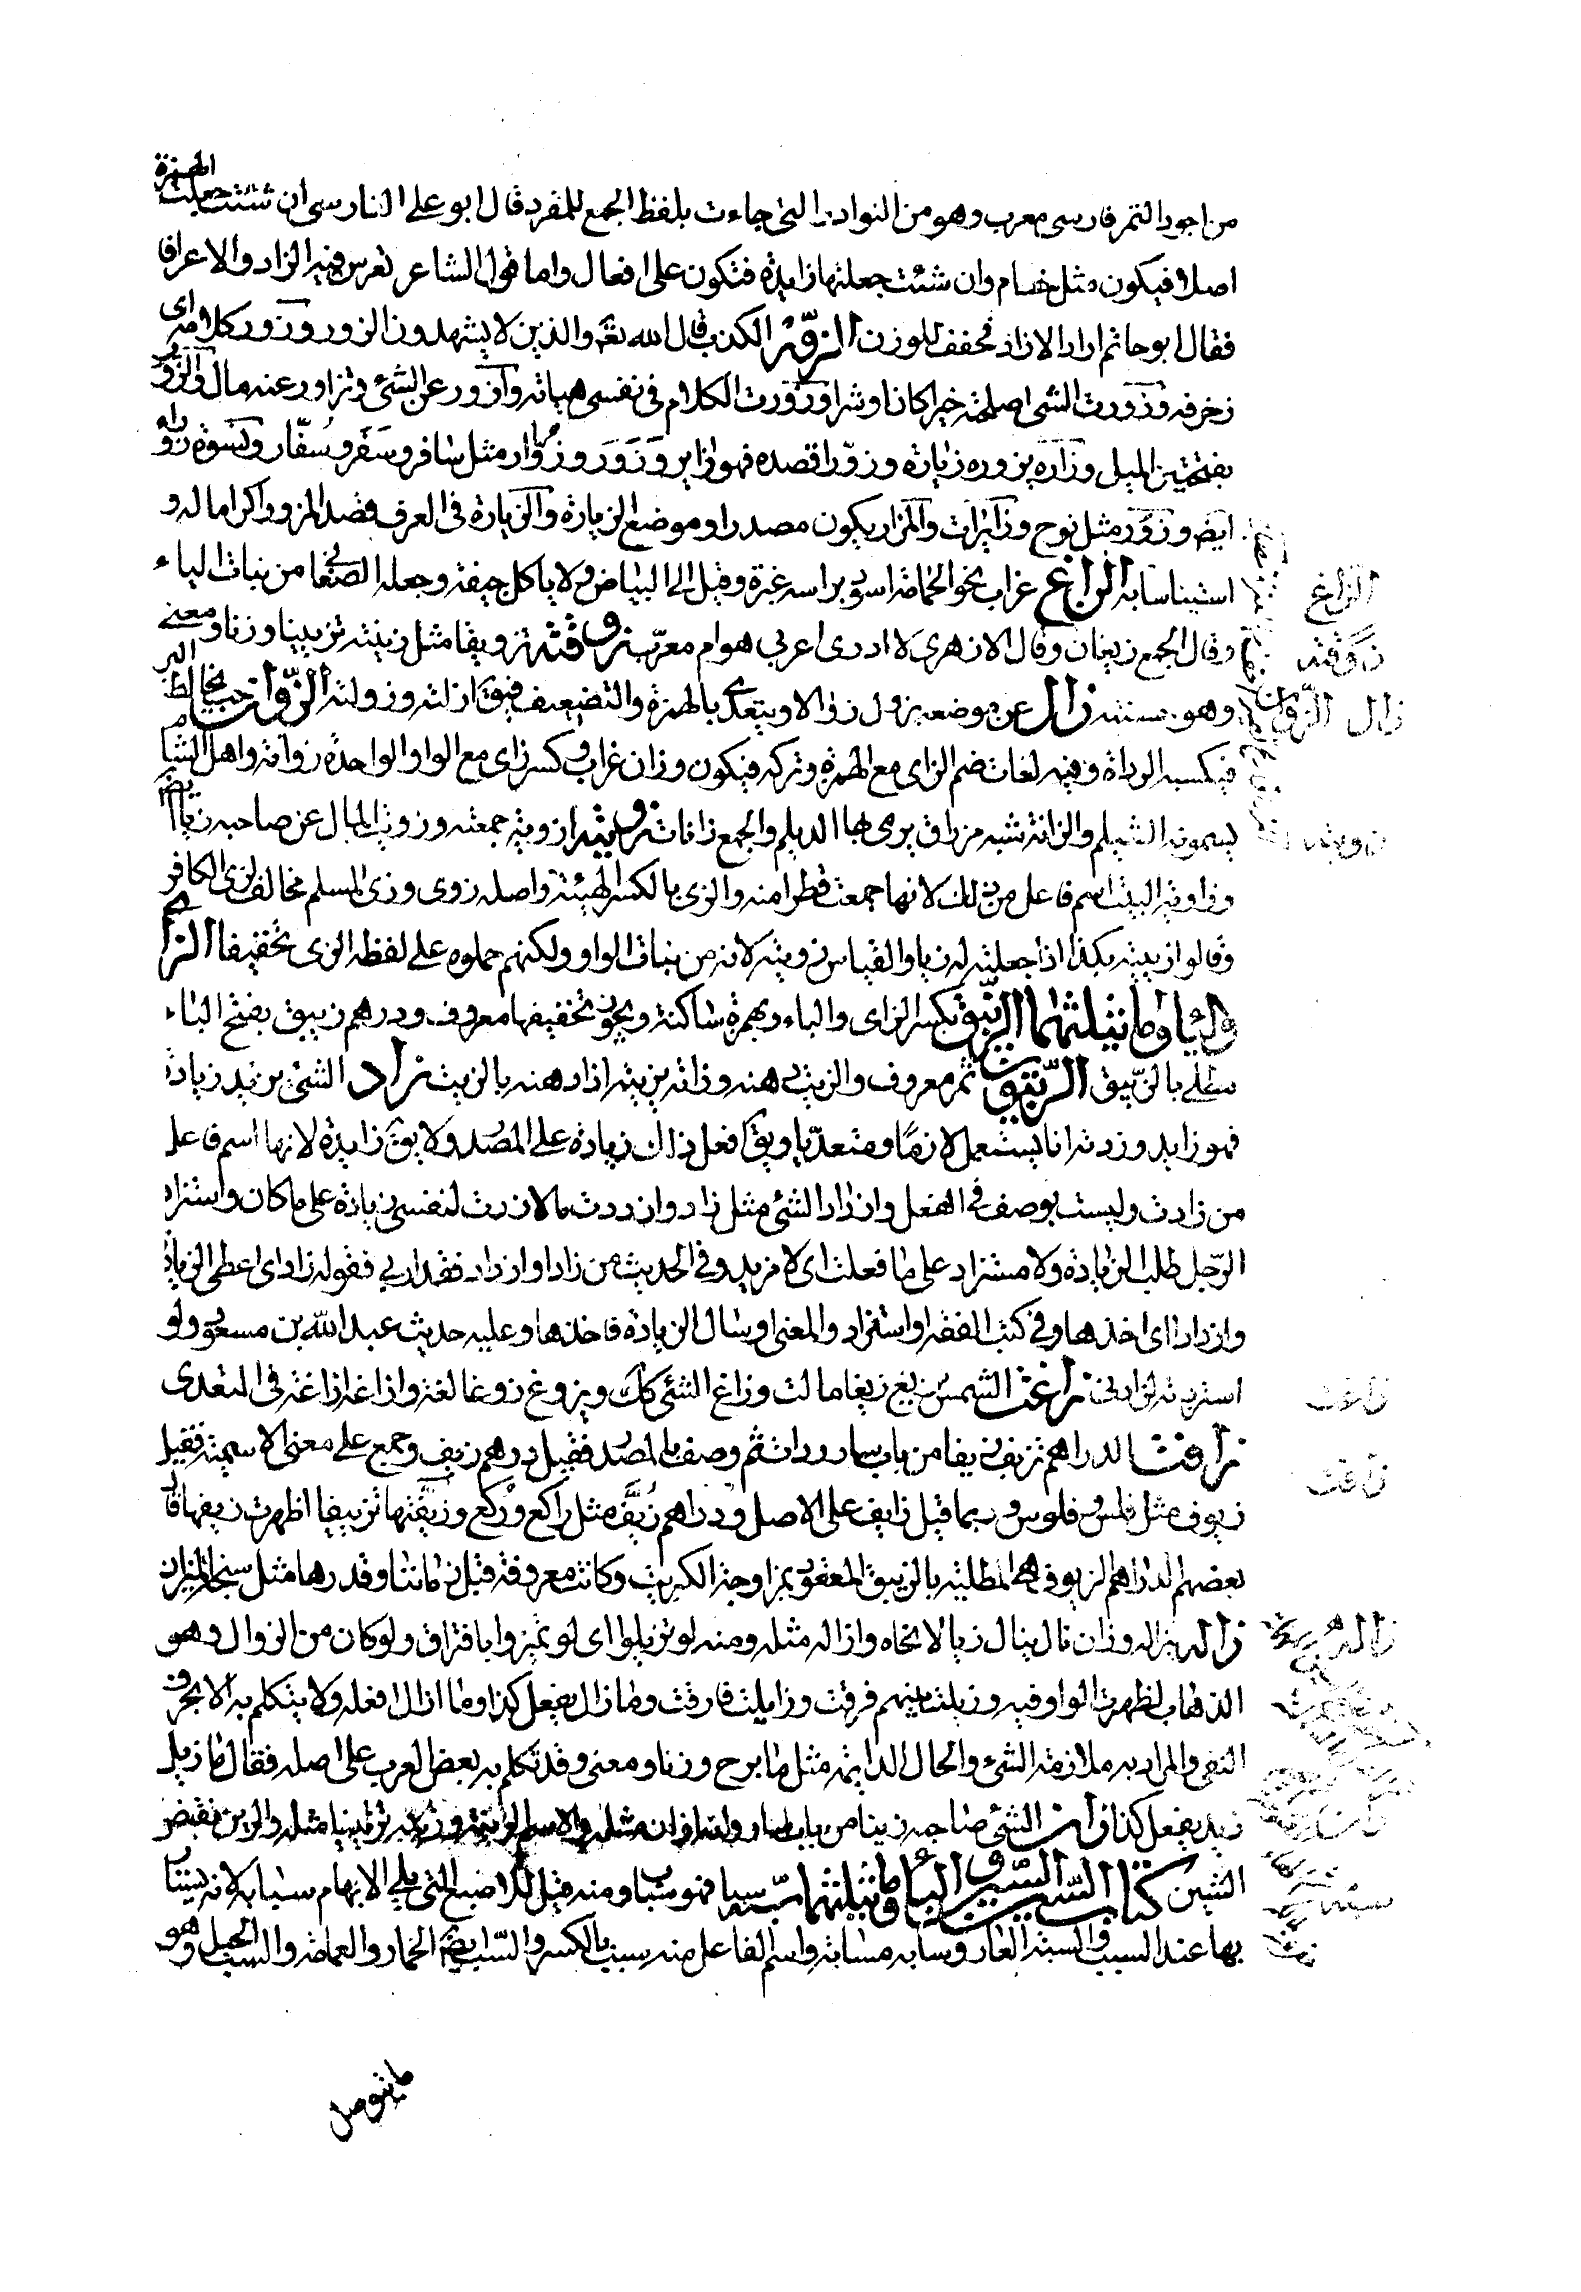 من اجود التمر فارسى معرب وهو من النوادر التى جاءت بلفظ الجمع للمفرد قال ابو على الفارسى ان شئت جعلت الهمزة
اصلا فيكون مثل خسام وان شئت جعلتها زايدة فتكون على افعال واما قول الشاعر تغرس فيه الزاد والاعرافا
فقال ابو حاتم اراد الازاذ فخفف للوزن الزور الكذب قال الله تعه والذين لا يشهدون الزور وزور كلامه اى
زخرفه وزورت الشى اصلحته خيرا كان او شرا وزورت الكلام فى نفسى هياته وازور عن الشئ وتزاور عنه مال والزور
بفتحتين الميل وزاره يزوره زيارة وزورا قصده فهو زاير وزور وزوار مثل سافر وسفر وسفار ونسوة زوار
ايضه وزور مثل نوح وزايرات والمزار يكون مصدرا وموضع الزيارة والزيارة فى العرف قصد المزور اكراما له و
استيناسا به الزاغ غراب نحو الحمامة اسود براسه غبرة وقيل الى البياض ولا ياكل جيفة وجعله الصغانى من بنات الياء
وقال الجمع زيغان وقال الازهرى لا ادرى اعربى هو ام معرب زوقته تزويقا مثل زينته تزيينا وزنا ومعنى
وهو حسنته زال عن موضعه يزول زوالا ويتعدى بالهمزة والتضعيف فيق ازلته وزولته الزوان حب يخالط البر
فيكسبه الرداة وفيه لغات ضم الزاى مع الهمزة وتركه فيكون وزان غراب وكسر زاى مع الواو الواحدة زوانة واهل الشام
يسمونه الشيلم والزانة شبه مزراق يرمى بها الديلم والجمع زانات زويته ازويه جمعته وزويت المال عن صاحبه زيا
وزاوية البيت اسم فاعل من ذلك لانها جمعت قطرا منه والزى بالكسر الهيئة واصله زوى وزى المسلم مخالف لزى الكافر
وقالوا زييته بكذا اذا جعلته له زيا والقياس زويته لانه من بنات الواو ولكنهم حملوه على لفظ الزى تخفيفا الزاى
والياء وما يثلثهما الزيبق بكسر الزاى والباء وبهمزة ساكنة ويجوز تخفيفها معروف ودرهم زيبق بفتح الباء
مطلى بالزيبق الزيتون ثمر معروف والزيت دهنه وزاته يزيته اذا دهنه بالزيت زاد الشئ يزيد زيادة
فهو زايد وزدته انا يستعمل لازما ومتعديا ويق فعل ذلك زيادة على المصدر ولا يق زايدة لانها اسم فاعل
من زادت وليست بوصف فى الفعل وازداد الشئ مثل زاد وازددت مالا زدت لنفسى زيادة على ما كان واستزاد
الرجل طلب الزيادة ولا مستزاد على ما فعلت اى لا مزيد وفى الحديث من زاد او ازداد فقد اربى فقوله زاد اى اعطى الزيادة
وازداد اى اخذها وفى كتب الفقه او استزاد والمعنى او سال الزيادة فاخذها وعليه حديث عبد الله بن مسعود ولو
استزدته لزادنى زاغت الشمس تزيغ زيغا مالت وزاغ الشئ كك ويزوغ زوغا لغة وازاغه ازاغة فى التعدى
زافت الدراهم تزيف زيفا من باب سار ردات ثم وصف بالمصدر فقيل درهم زيف وجمع على معنى الاسمية فقيل
زيوف مثل فلس وفلوس وربما قيل زايف على الاصل ودراهم زيف مثل راكع وركع وزيفتها تزييفا اظهرت زيفها قال
بعضهم الدراهم الزيوف هى المطلية بالزيبق المعقود بمزاوجة الكبريت وكانت معروفة قبل زماننا وقدرها مثل سنج الميزان
زاله يزاله وزان نال ينال زيالا نحاه وازاله مثله ومنه لو تزيلوا اى لو تميزوا بافتراق ولو كان من الزوال وهو
الذهاب لظهرت الواو فيه وزيلت بينهم فرقت وزايلت فارقت وما زال يفعل كذا وما ازال افعله ولا يتكلم به الا بحرف
النفى والمراد به ملازمة الشئ والحال الدايمة مثل ما برح وزنا ومعنى وقد تكلم به بعض العرب على اصله فقال ما زيل
زيد يفعل كذا زان الشئ صاحبه زينا من باب سار وازانه مثله والاسم الزينة وزينه تزيينا مثله والزين نقيض
الشين كتاب السين السين والباء وما يثلثهما سبه سبا فهو سباب ومنه قيل للاصبع التى يلى الابهام سبابة لانه يشار
بها عند السبب والسبة العار وسابه مسابة واسم الفاعل منه سب بالكسر والسب ايضه الخمار والعمامة والسبب الحبل وهو
ما يتوصل
الزاغ
زوقته
زال الزوان
زويته
زاغت
زافت
زاله
زان